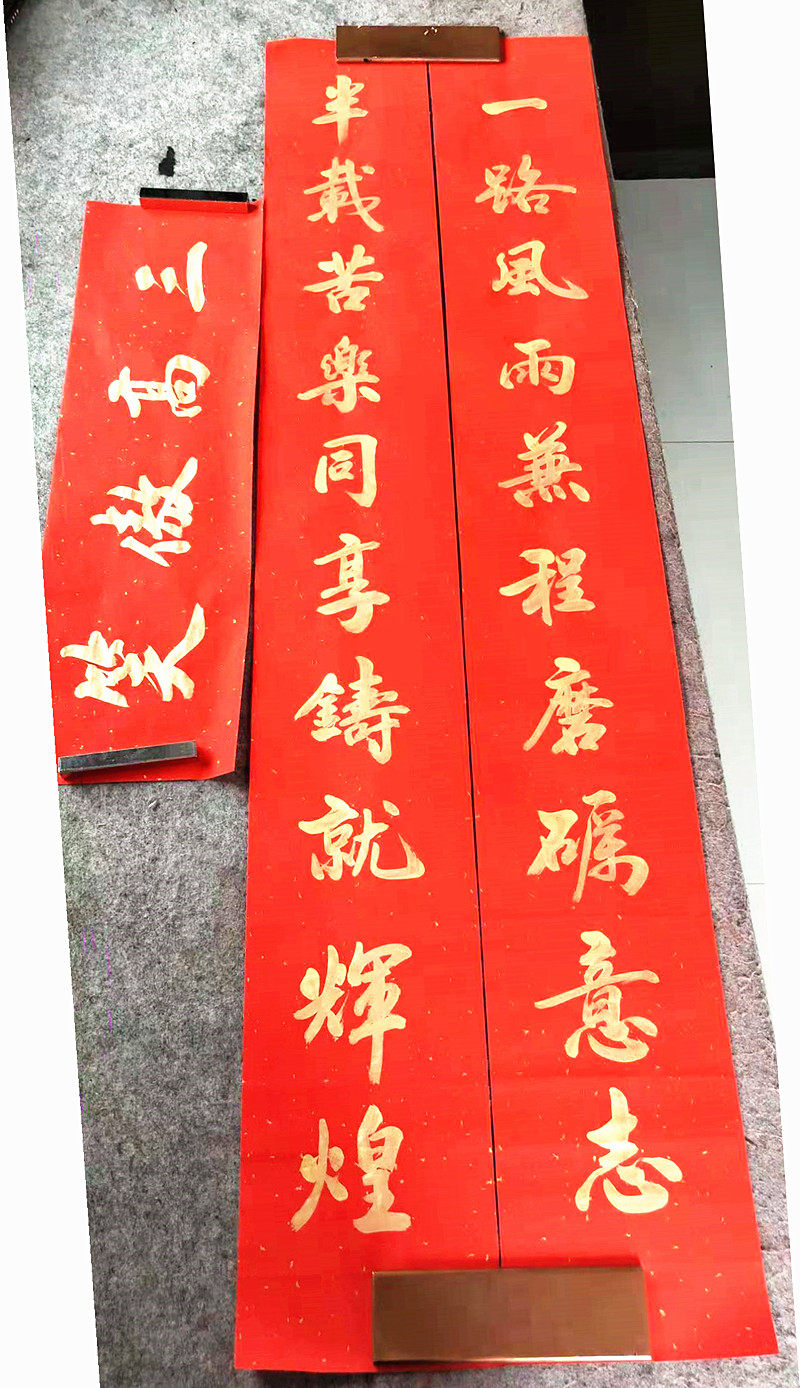 一路風雨兼程磨礪意志
半載苦樂同享鑄就輝煌
笑傲高三